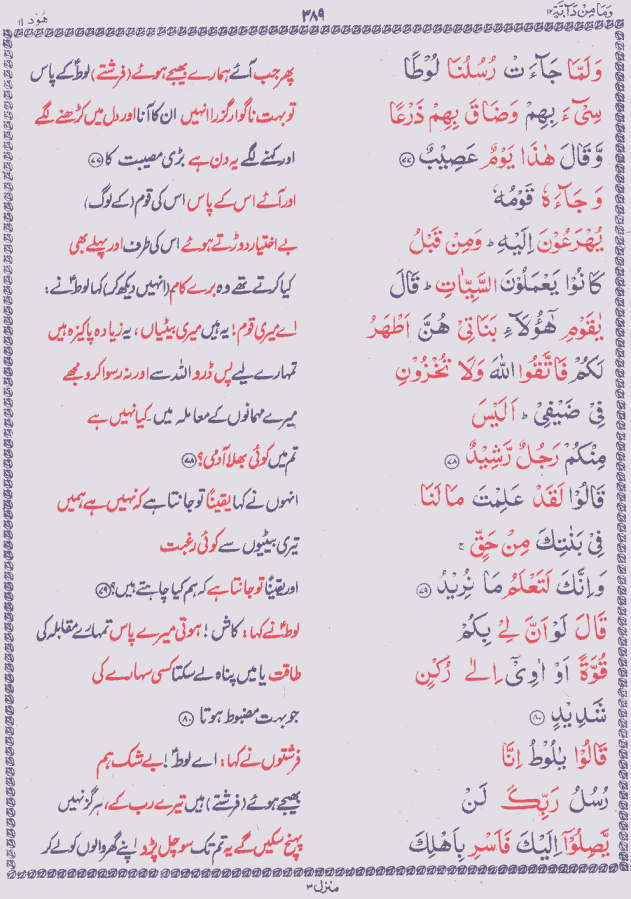 وَمَا مِنْ دَآبَّةٍ ١٢
٣٨٩
هُوْد ١١
وَلَمَّا جَآءَتْ رُسُلُنَا لُوْطًا
پھر جب آئے ہمارے بھیجے ہوئے (فرشتے) لوطؑ کے پاس
سِیْٓءَ بِهِمْ وَضَاقَ بِهِمْ ذَرْعًا
تو بہت ناگوار گزرا انہیں ان کا آنا اور دل میں کڑھنے لگے
وَّقَالَ هٰذَا يَوْمٌ عَصِيْبٌ ﴿٧٧﴾
اور کہنے لگے یہ دن ہے بڑی مصیبت کا ﴿٧٧﴾
وَجَآءَهٗ قَوْمُهٗ
اور آئے اس کے پاس اس کی قوم (کے لوگ)
يُهْرَعُوْنَ اِلَيْهِ ؕ وَمِنْ قَبْلُ
بے اختیار دوڑتے ہوئے اس کی طرف اور پہلے بھی
كَانُوْا يَعْمَلُوْنَ السَّيِّاٰتِ ؕ قَالَ
کیا کرتے تھے وہ برے کام (انہیں دیکھ کر) کہا لوطؑ نے:
يٰقَوْمِ هٰٓؤُلَآءِ بَنَاتِيْ هُنَّ اَطْهَرُ
اے میری قوم! یہ ہیں میری بیٹیاں، یہ زیادہ پاکیزہ ہیں
لَكُمْ فَاتَّقُوا اللّٰهَ وَلَا تُخْزُوْنِ
تمہارے لیے پس ڈرو اللہ سے اور نہ رسوا کرو مجھے
فِيْ ضَيْفِيْ ؕ اَلَيْسَ
میرے مہمانوں کے معاملہ میں۔ کیا نہیں ہے
مِنْكُمْ رَجُلٌ رَّشِيْدٌ ﴿٧٨﴾
تم میں کوئی بھلا آدمی؟ ﴿٧٨﴾
قَالُوْا لَقَدْ عَلِمْتَ مَا لَنَا
انہوں نے کہا یقیناً تو جانتا ہے کہ نہیں ہے ہمیں
فِيْ بَنٰتِكَ مِنْ حَقٍّ ۚ
تیری بیٹیوں سے کوئی رغبت
وَاِنَّكَ لَتَعْلَمُ مَا نُرِيْدُ ﴿٧٩﴾
اور یقیناً تو جانتا ہے کہ ہم کیا چاہتے ہیں؟ ﴿٧٩﴾
قَالَ لَوْ اَنَّ لِيْ بِكُمْ
لوطؑ نے کہا: کاش! ہوتی میرے پاس تمہارے مقابلہ کی
قُوَّةً اَوْ اٰوِيْٓ اِلٰى رُكْنٍ
طاقت یا میں پناہ لے سکتا کسی سہارے کی
شَدِيْدٍ ﴿٨٠﴾
جو بہت مضبوط ہوتا ﴿٨٠﴾
قَالُوْا يٰلُوْطُ اِنَّا
فرشتوں نے کہا: اے لوطؑ! بے شک ہم
رُسُلُ رَبِّكَ لَنْ
بھیجے ہوئے (فرشتے) ہیں تیرے رب کے، ہرگز نہیں
يَّصِلُوْٓا اِلَيْكَ فَاَسْرِ بِاَهْلِكَ
پہنچ سکیں گے یہ تم تک سو چل پڑو اپنے گھر والوں کو لے کر
منزل ٣